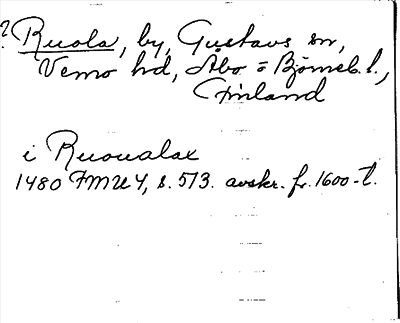 ? Ruola, by, Gustavs sn,
Vemo hd, Åbo = Björneb. l.,
Finland
i Ruoualax
1480 FMU 4, s. 513. avskr. fr. 1600-t.